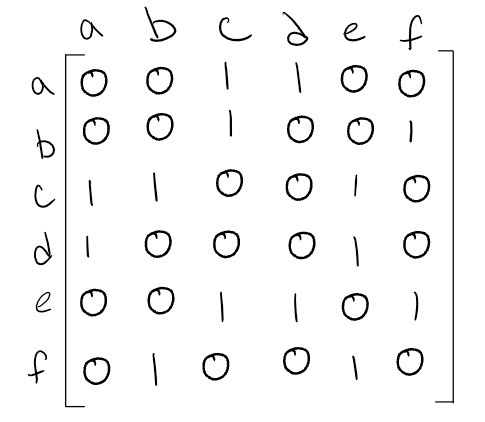 a b c d e f
a 0 0 1 1 0 0
b 0 0 1 0 0 1
c 1 1 0 0 1 0
d 1 0 0 0 1 0
e 0 0 1 1 0 1
f 0 1 0 0 1 0